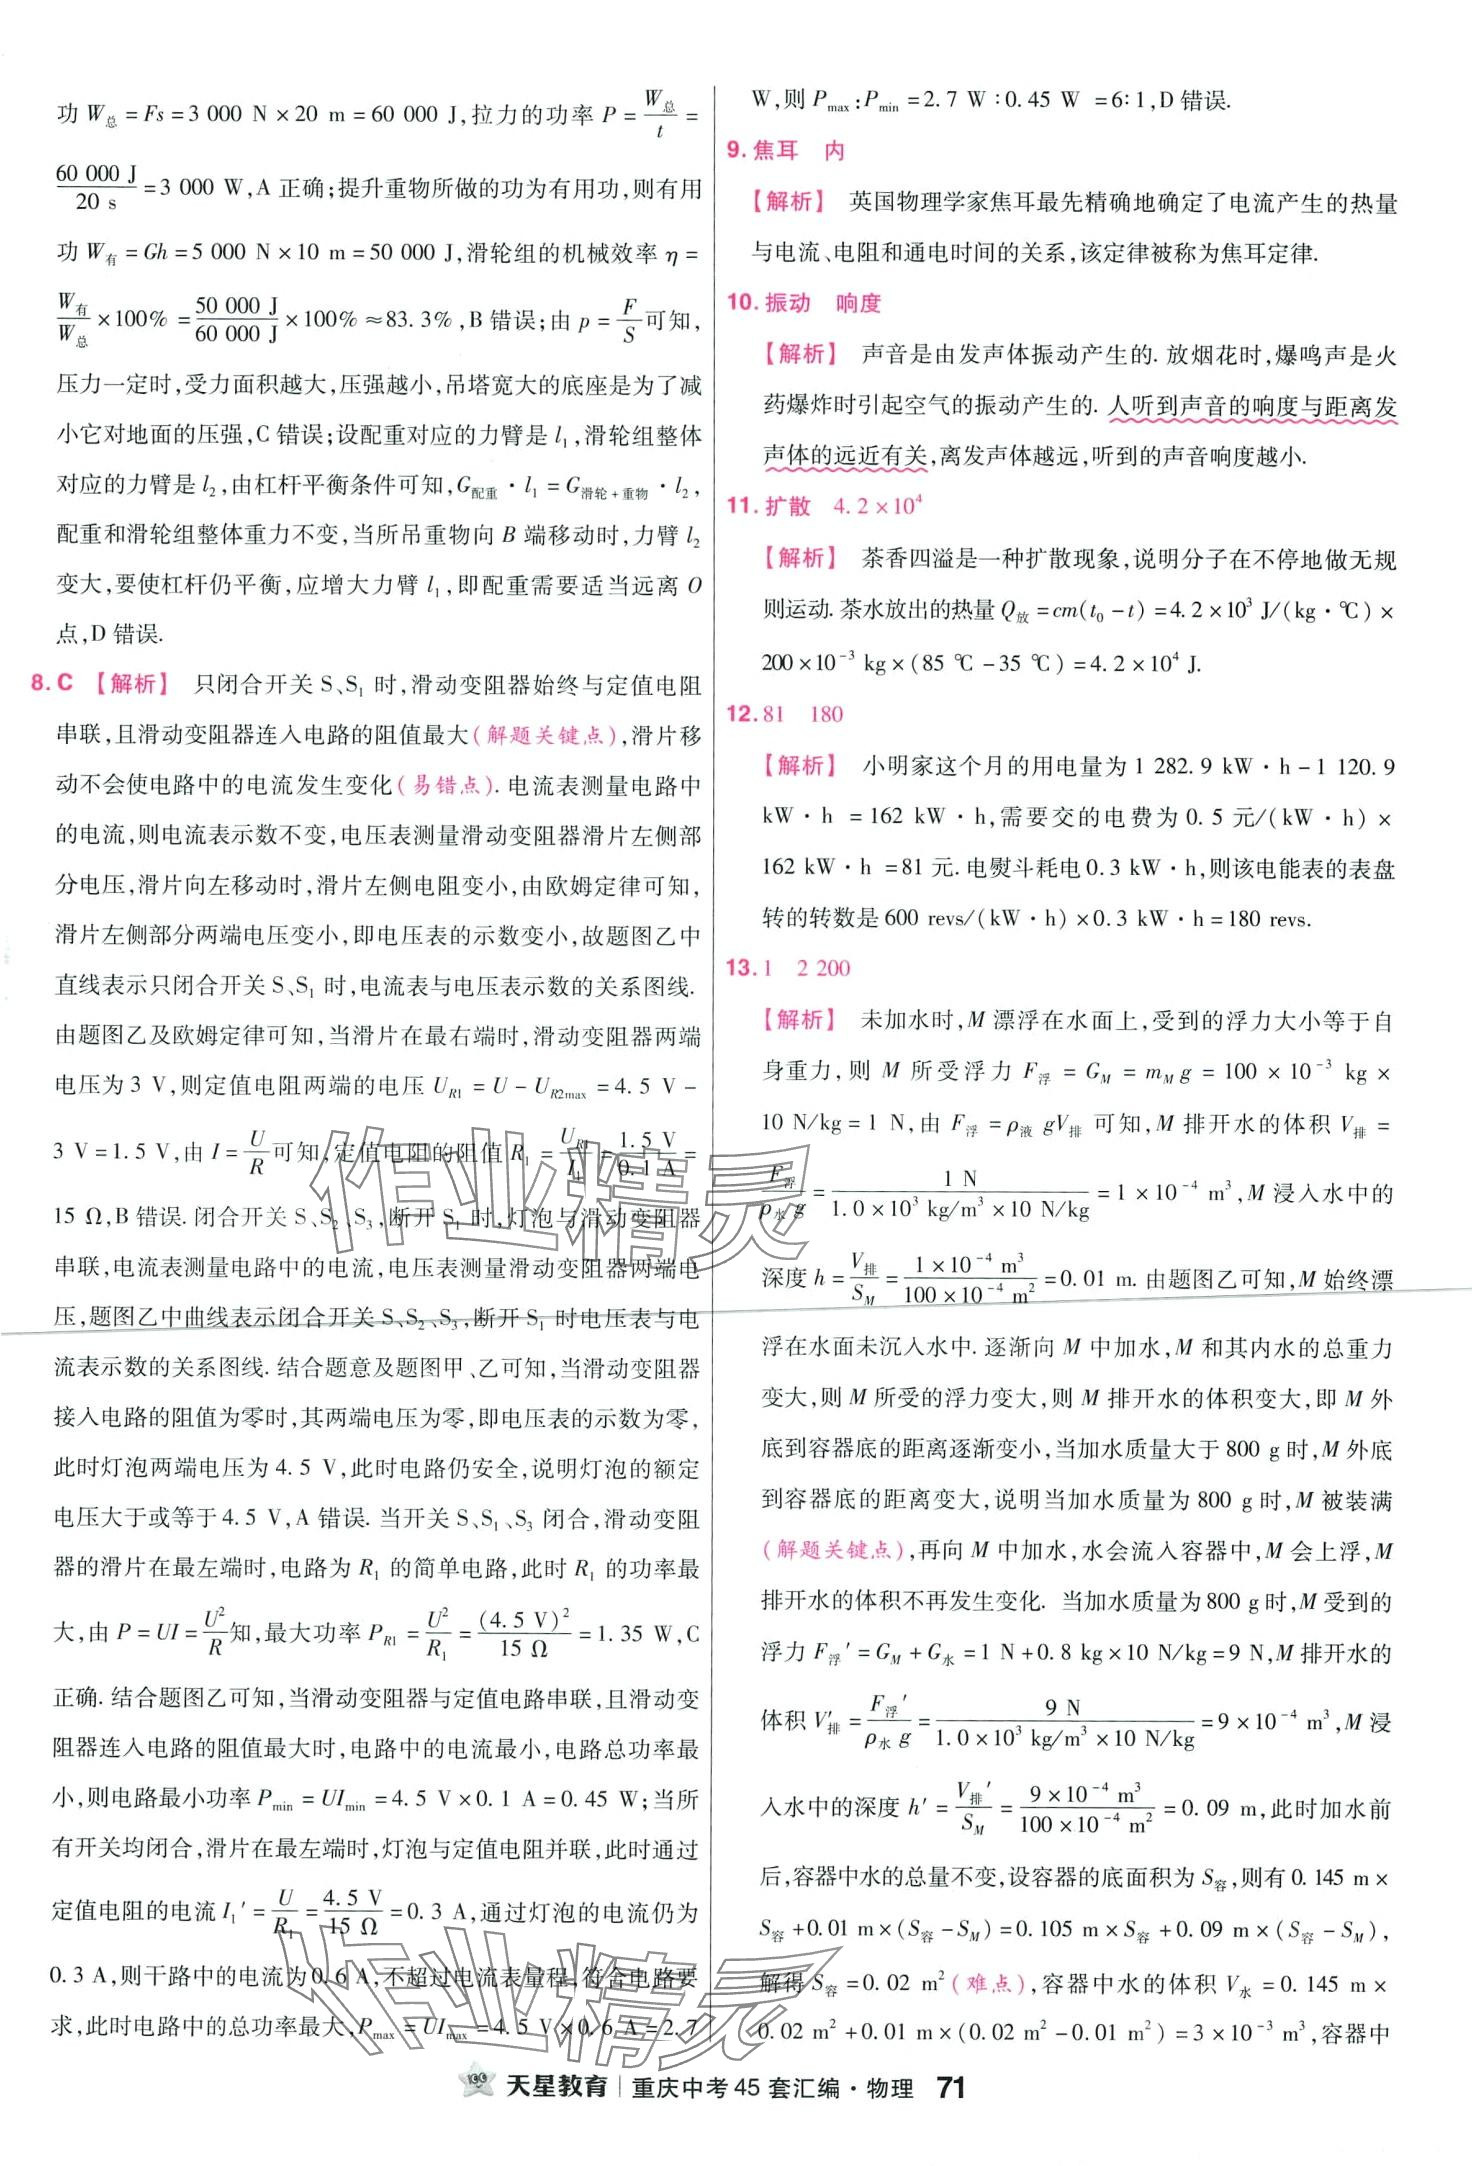 功 W总 = Fs = 3 000 N × 20 m = 60 000 J,拉力的功率 P = W总/t =
60 000 J/20 s = 3 000 W,A 正确;提升重物所做的功为有用功,则有用
功 W有 = Gh = 5 000 N × 10 m = 50 000 J,滑轮组的机械效率 η =
W有/W总 × 100% = 50 000 J/60 000 J × 100% ≈ 83.3%,B 错误;由 p = F/S 可知,
压力一定时,受力面积越大,压强越小,吊塔宽大的底座是为了减
小它对地面的压强,C 错误;设配重对应的力臂是 l₁,滑轮组整体
对应的力臂是 l₂,由杠杆平衡条件可知,G配重 · l₁ = G滑轮+重物 · l₂,
配重和滑轮组整体重力不变,当所吊重物向 B 端移动时,力臂 l₂
变大,要使杠杆仍平衡,应增大力臂 l₁,即配重需要适当远离 O
点,D 错误.
8. C 【解析】 只闭合开关 S、S₁ 时,滑动变阻器始终与定值电阻
串联,且滑动变阻器连入电路的阻值最大(解题关键点),滑片移
动不会使电路中的电流发生变化(易错点). 电流表测量电路中
的电流,则电流表示数不变,电压表测量滑动变阻器滑片左侧部
分电压,滑片向左移动时,滑片左侧电阻变小,由欧姆定律可知,
滑片左侧部分两端电压变小,即电压表的示数变小,故题图乙中
直线表示只闭合开关 S、S₁ 时,电流表与电压表示数的关系图线.
由题图乙及欧姆定律可知,当滑片在最右端时,滑动变阻器两端
电压为 3 V,则定值电阻两端的电压 U_R1 = U − U_R2max = 4.5 V −
3 V = 1.5 V,由 I = U/R 可知,定值电阻的阻值 R₁ = U_R1/I₁ = 1.5 V/0.1 A =
15 Ω,B 错误. 闭合开关 S、S₂、S₃,断开 S₁ 时,灯泡与滑动变阻器
串联,电流表测量电路中的电流,电压表测量滑动变阻器两端电
压,题图乙中曲线表示闭合开关 S、S₂、S₃,断开 S₁ 时电压表与电
流表示数的关系图线. 结合题意及题图甲、乙可知,当滑动变阻器
接入电路的阻值为零时,其两端电压为零,即电压表的示数为零,
此时灯泡两端电压为 4.5 V,此时电路仍安全,说明灯泡的额定
电压大于或等于 4.5 V,A 错误. 当开关 S、S₁、S₃ 闭合,滑动变阻
器的滑片在最左端时,电路为 R₁ 的简单电路,此时 R₁ 的功率最
大,由 P = UI = U²/R 知,最大功率 P_R1 = U²/R₁ = (4.5 V)²/15 Ω = 1.35 W,C
正确. 结合题图乙可知,当滑动变阻器与定值电阻串联,且滑动变
阻器连入电路的阻值最大时,电路中的电流最小,电路总功率最
小,则电路最小功率 Pmin = UImin = 4.5 V × 0.1 A = 0.45 W;当所
有开关均闭合,滑片在最左端时,灯泡与定值电阻并联,此时通过
定值电阻的电流 I₁′ = U/R₁ = 4.5 V/15 Ω = 0.3 A,通过灯泡的电流仍为
0.3 A,则干路中的电流为 0.6 A,不超过电流表量程,符合电路要
求,此时电路中的总功率最大,Pmax = UImax = 4.5 V × 0.6 A = 2.7
W,则 Pmax : Pmin = 2.7 W : 0.45 W = 6 : 1,D 错误.
9. 焦耳 内
【解析】 英国物理学家焦耳最先精确地确定了电流产生的热量
与电流、电阻和通电时间的关系,该定律被称为焦耳定律.
10. 振动 响度
【解析】 声音是由发声体振动产生的. 放烟花时,爆鸣声是火
药爆炸时引起空气的振动产生的. 人听到声音的响度与距离发
声体的远近有关,离发声体越远,听到的声音响度越小.
11. 扩散 4.2 × 10⁴
【解析】 茶香四溢是一种扩散现象,说明分子在不停地做无规
则运动. 茶水放出的热量 Q放 = cm(t₀ − t) = 4.2 × 10³ J/(kg · ℃) ×
200 × 10⁻³ kg × (85 ℃ − 35 ℃) = 4.2 × 10⁴ J.
12. 81 180
【解析】 小明家这个月的用电量为 1 282.9 kW · h − 1 120.9
kW · h = 162 kW · h,需要交的电费为 0.5 元/(kW · h) ×
162 kW · h = 81 元. 电熨斗耗电 0.3 kW · h,则该电能表的表盘
转的转数是 600 revs/(kW · h) × 0.3 kW · h = 180 revs.
13. 1 2 200
【解析】 未加水时,M 漂浮在水面上,受到的浮力大小等于自
身重力,则 M 所受浮力 F浮 = G_M = m_M g = 100 × 10⁻³ kg ×
10 N/kg = 1 N,由 F浮 = ρ液 gV排 可知,M 排开水的体积 V排 =
F浮/ρ水g = 1 N/1.0 × 10³ kg/m³ × 10 N/kg = 1 × 10⁻⁴ m³,M 浸入水中的
深度 h = V排/S_M = 1 × 10⁻⁴ m³/100 × 10⁻⁴ m² = 0.01 m. 由题图乙可知,M 始终漂
浮在水面未沉入水中. 逐渐向 M 中加水,M 和其内水的总重力
变大,则 M 所受的浮力变大,则 M 排开水的体积变大,即 M 外
底到容器底的距离逐渐变小,当加水质量大于 800 g 时,M 外底
到容器底的距离变大,说明当加水质量为 800 g 时,M 被装满
(解题关键点),再向 M 中加水,水会流入容器中,M 会上浮,M
排开水的体积不再发生变化. 当加水质量为 800 g 时,M 受到的
浮力 F浮′ = G_M + G水 = 1 N + 0.8 kg × 10 N/kg = 9 N,M 排开水的
体积 V′排 = F浮′/ρ水 g = 9 N/1.0 × 10³ kg/m³ × 10 N/kg = 9 × 10⁻⁴ m³,M 浸
入水中的深度 h′ = V排′/S_M = 9 × 10⁻⁴ m³/100 × 10⁻⁴ m² = 0.09 m,此时加水前
后,容器中水的总量不变,设容器的底面积为 S容,则有 0.145 m ×
S容 + 0.01 m × (S容 − S_M) = 0.105 m × S容 + 0.09 m × (S容 − S_M),
解得 S容 = 0.02 m²(难点),容器中水的体积 V水 = 0.145 m ×
0.02 m² + 0.01 m × (0.02 m² − 0.01 m²) = 3 × 10⁻³ m³,容器中
作业精灵
作业精灵
天星教育 | 重庆中考 45 套汇编 · 物理 71